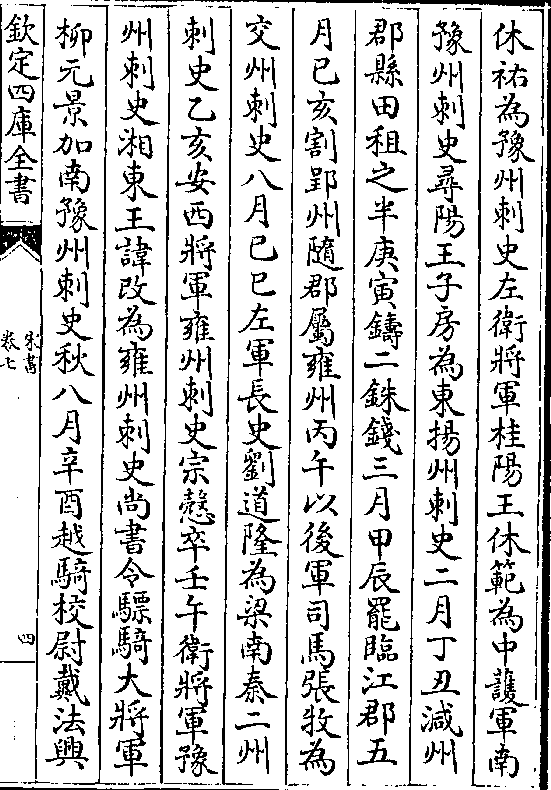 休祐為豫州刺史左衛將軍桂陽王休範為中護軍南
豫州刺史尋陽王子房為東揚州刺史二月丁丑減州
郡縣田租之半庚寅鑄二銖錢三月甲辰罷臨江郡五
月己亥割郢州隨郡屬雍州丙午以後軍司馬張牧為
交州刺史八月己巳左軍長史劉道隆為梁南秦二州
刺史乙亥安西將軍雍州刺史宗慤卒壬午衛將軍豫
州刺史湘東王諱改為雍州刺史尚書令驃騎大將軍
柳元景加南豫州刺史秋八月辛酉越騎校尉戴法興
欽定四庫全書
宋書
卷七
四